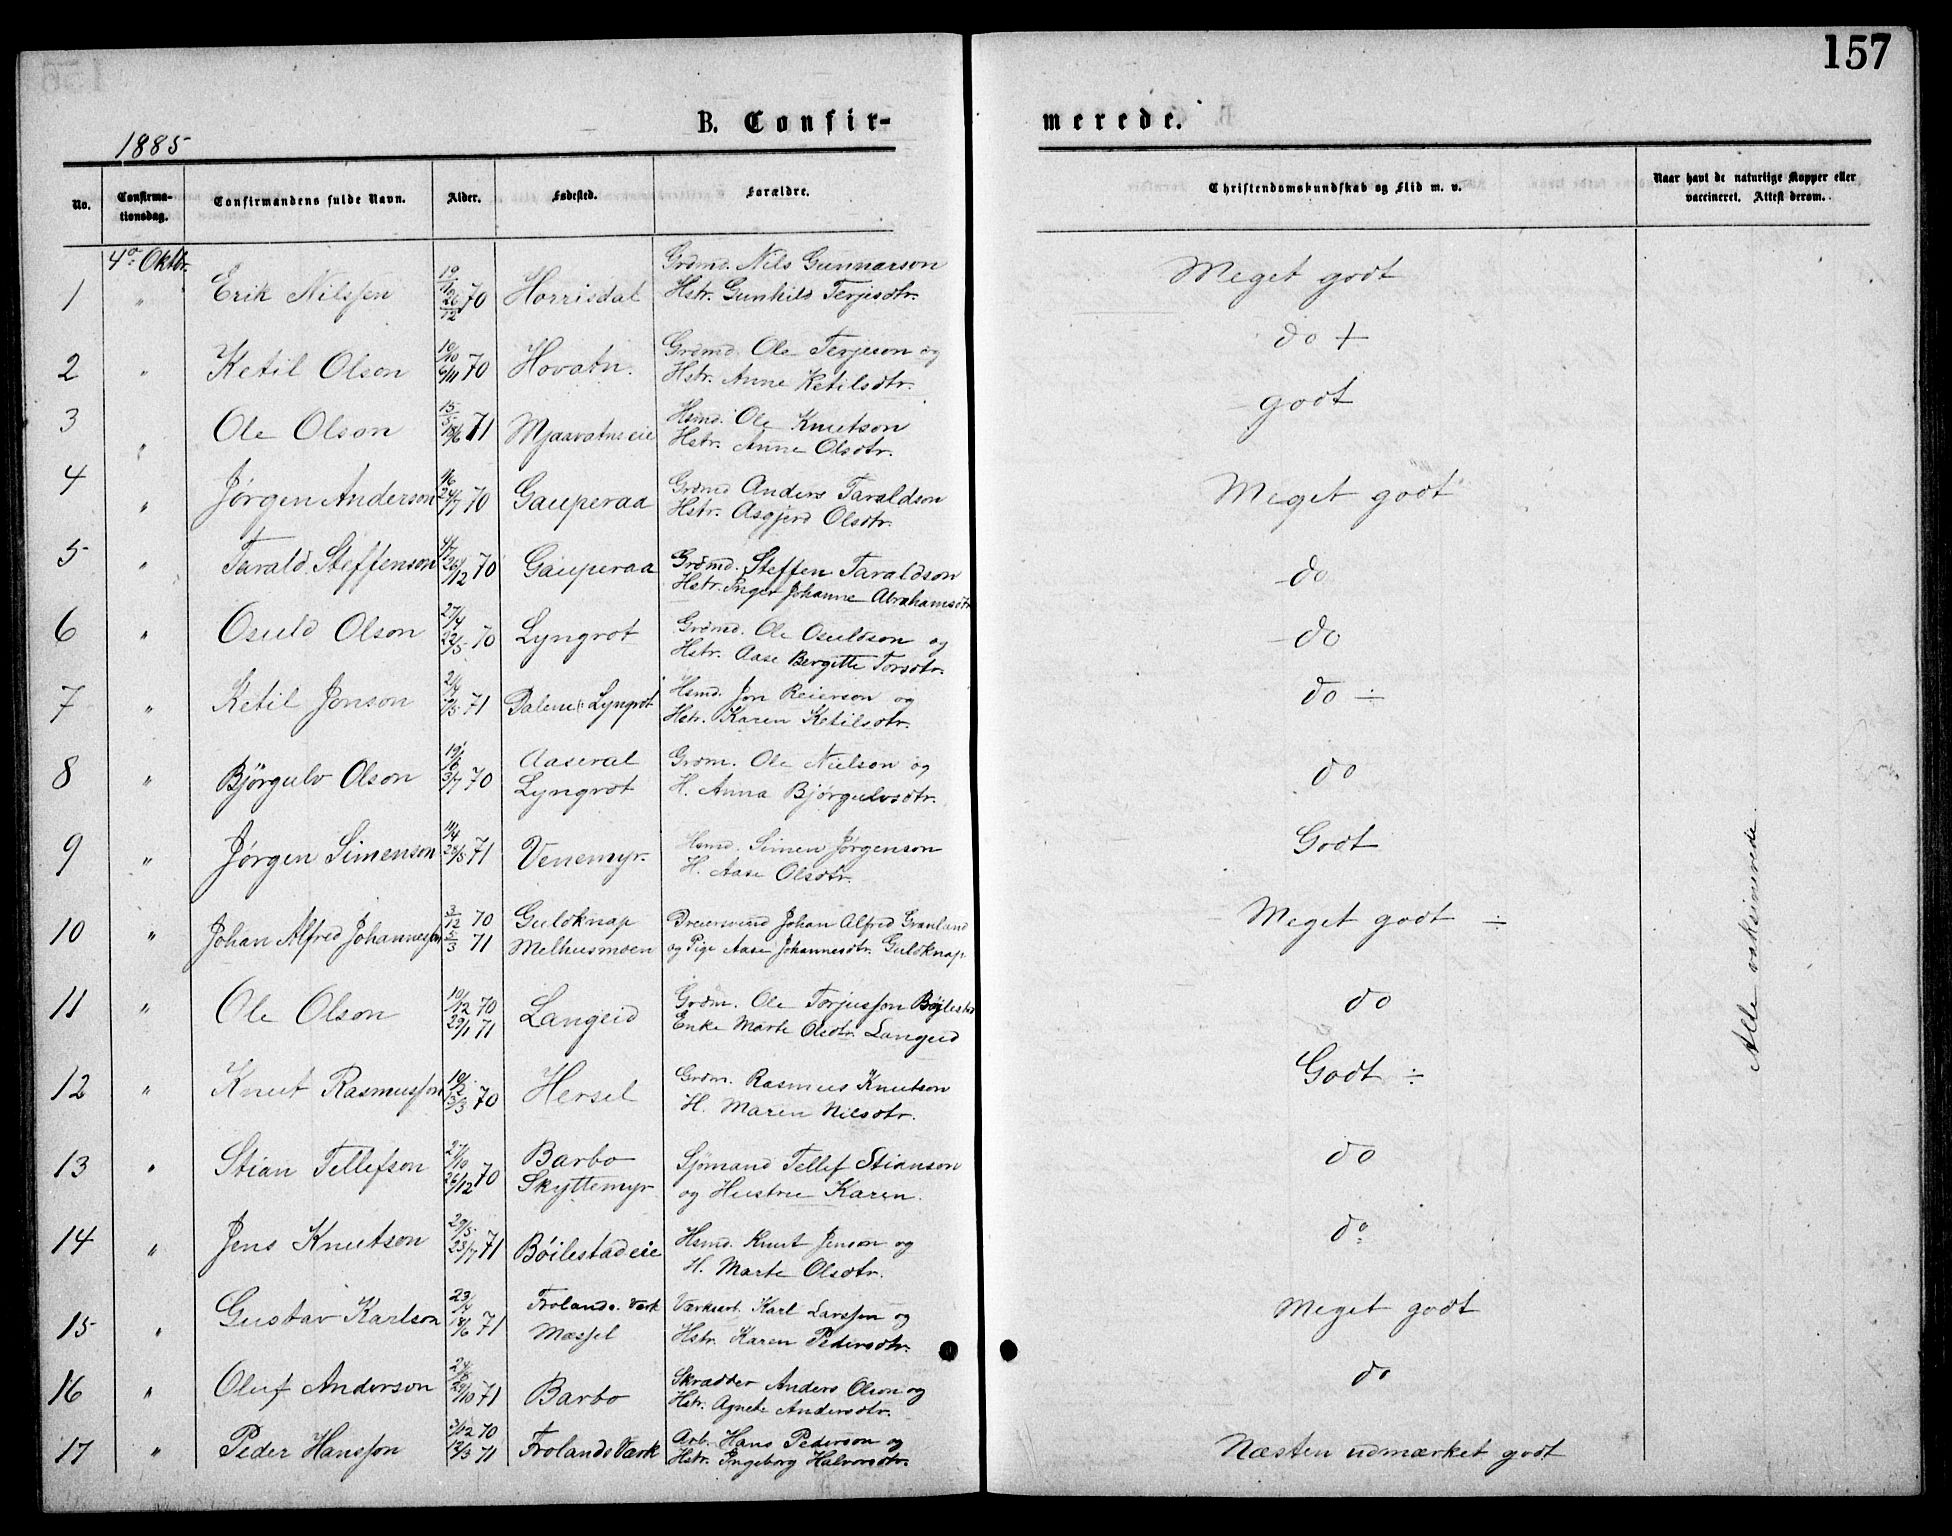 157
1885
B. Confir-
merede.
No.
Confirma-
tionsdag.
Confirmandens fulde Navn.
Alder.
Fødested.
Forældre.
Christendomskundskab og Flid m. v.
Naar havt de naturlige Kopper eller
vaccineret. Attest derom.
4de Oktbr.
1 " Erik Nilssen 19/10 26/12 70 Horrisdal Grdmd. Nils Gunnarson
Hstr. Gunhild Terjesdtr. Meget godt
2 " Ketil Olson 19/10 6/11 70 Hovatn. Grdmd. Ole Terjeson og
Hstr. Anne Ketilsdtr. do +
3 " Ole Olson 15/5 18/6 71 Mjaavatnseie Hsmd. Ole Knutson
Hstr. Anne Olsdtr. godt
4 " Jørgen Anderson 11/6 24/7 70 Gauperaa Grdmd Anders Taraldson
Hstr. Asgjerd Olsdtr. Meget godt
5 " Tarald Steffenson 26/12 70 Gauperaa Grdmd. Steffen Taraldson
Hstr. Inger Johanne Abrahamsdtr do
6 " Osuld Olson 27/4 22/5 70 Lyngrot Grdmd. Ole Osuldson og
Hstr. Aase Bergitte Torsdtr. do
7 " Ketil Jonson 71 Dalene i Lyngrot Hsmd. Jon Reierson og
Hstr. Karen Ketilsdtr. do ÷
8 " Bjørgulv Olson 19/6 3/7 70 Aaseral
Lyngrot Grdm. Ole Nielson og
H. Anna Bjørgulvsdtr. do
9 " Jørgen Simenson 11/4 28/5 71 Venemyr. Hsmd. Simen Jørgenson
H. Aase Olsdtr. Godt
10 " Johan Alfred Johannessen 3/12 70 5/3 71 Guldknap
Melhusmoen Dreiersvend Johan Alfred Granlund
og Pige Aase Johannesdtr. Guldknap Meget godt ÷
11 " Ole Olson 10/12 70 29/1 71 Langeid Grdm. Ole Torjussen Bøjlestad
Enke Marte Olsdtr. Langeid do
12 " Knut Rasmussen 10/2 13/3 70 Hersel Grdm. Rasmus Knutson
H. Maren Nilsdtr. Godt ÷
13 " Stian Tellefson 27/10 26/12 70 Barbo
Skyttemyr Sjømand Tellef Stianson
og Hustru Karen. do
14 " Jens Knutson 29/5 23/7 71 Bøilestadeie Hsmd. Knut Jenson og
H. Marte Olsdtr. do
15 " Gustav Karlson 23/4 18/6 71 Frolands Værk
Messel Værksarb. Karl Larssen og
Hstr. Karen Pedersdtr. Meget godt
16 " Oluf Anderson 29/10 71 Barbo Skrædder Anders Olson og
Hstr. Agnete Andersdtr. do
17 " Peder Hanssen 3/12 70 12/3 71 Frolands Værk Arb. Hans Pederson og
Hstr. Ingeborg Halvorsdtr. Næsten udmærket godt
Alle vaksinerede.